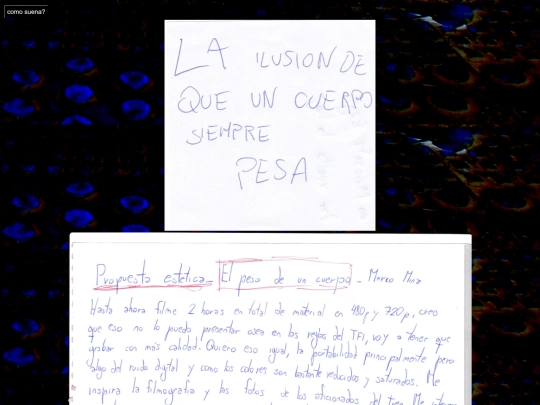 como suena?
LA ILUSION DE
QUE UN CUERPO
SIEMPRE
PESA
Propuesta estética = El peso de un cuerpo - Marco
Hasta ahora filme 2 horas en total de material en 480p y 720p, creo
que eso no lo puedo presentar osea en las reglas del TFI, voy a tener que
grabar con más calidad. Quiero eso igual, la portabilidad principalmente pero
algo del ruido digital y como los colores son bastante reducidos y saturados. Me
inspira la filmografia y las fotos de los aficionados del tren. Me